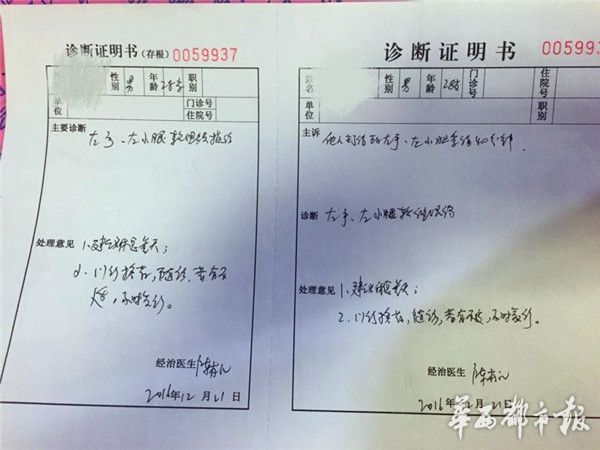 诊断证明书(存根) 0059937
性别 男 年龄 28岁 职别
单位 门诊号
住院号
主要诊断
左手、左小腿软组织损伤
处理意见 1、建议休息叁天;
2、门诊换药,随诊,若有不
适,不时复诊。
经治医生
2016年12月21日
诊断证明书 005993
姓名 性别 男 年龄 28岁 门诊号 住院号
单位 职别
主诉
他人打伤致左手、左小腿受伤40分钟.
诊断 左手、左小腿软组织损伤
处理意见 1、建议休息叁天;
2、门诊换药,随诊,若有不适,不时复诊。
经治医生
2016年12月21日
华西都市报